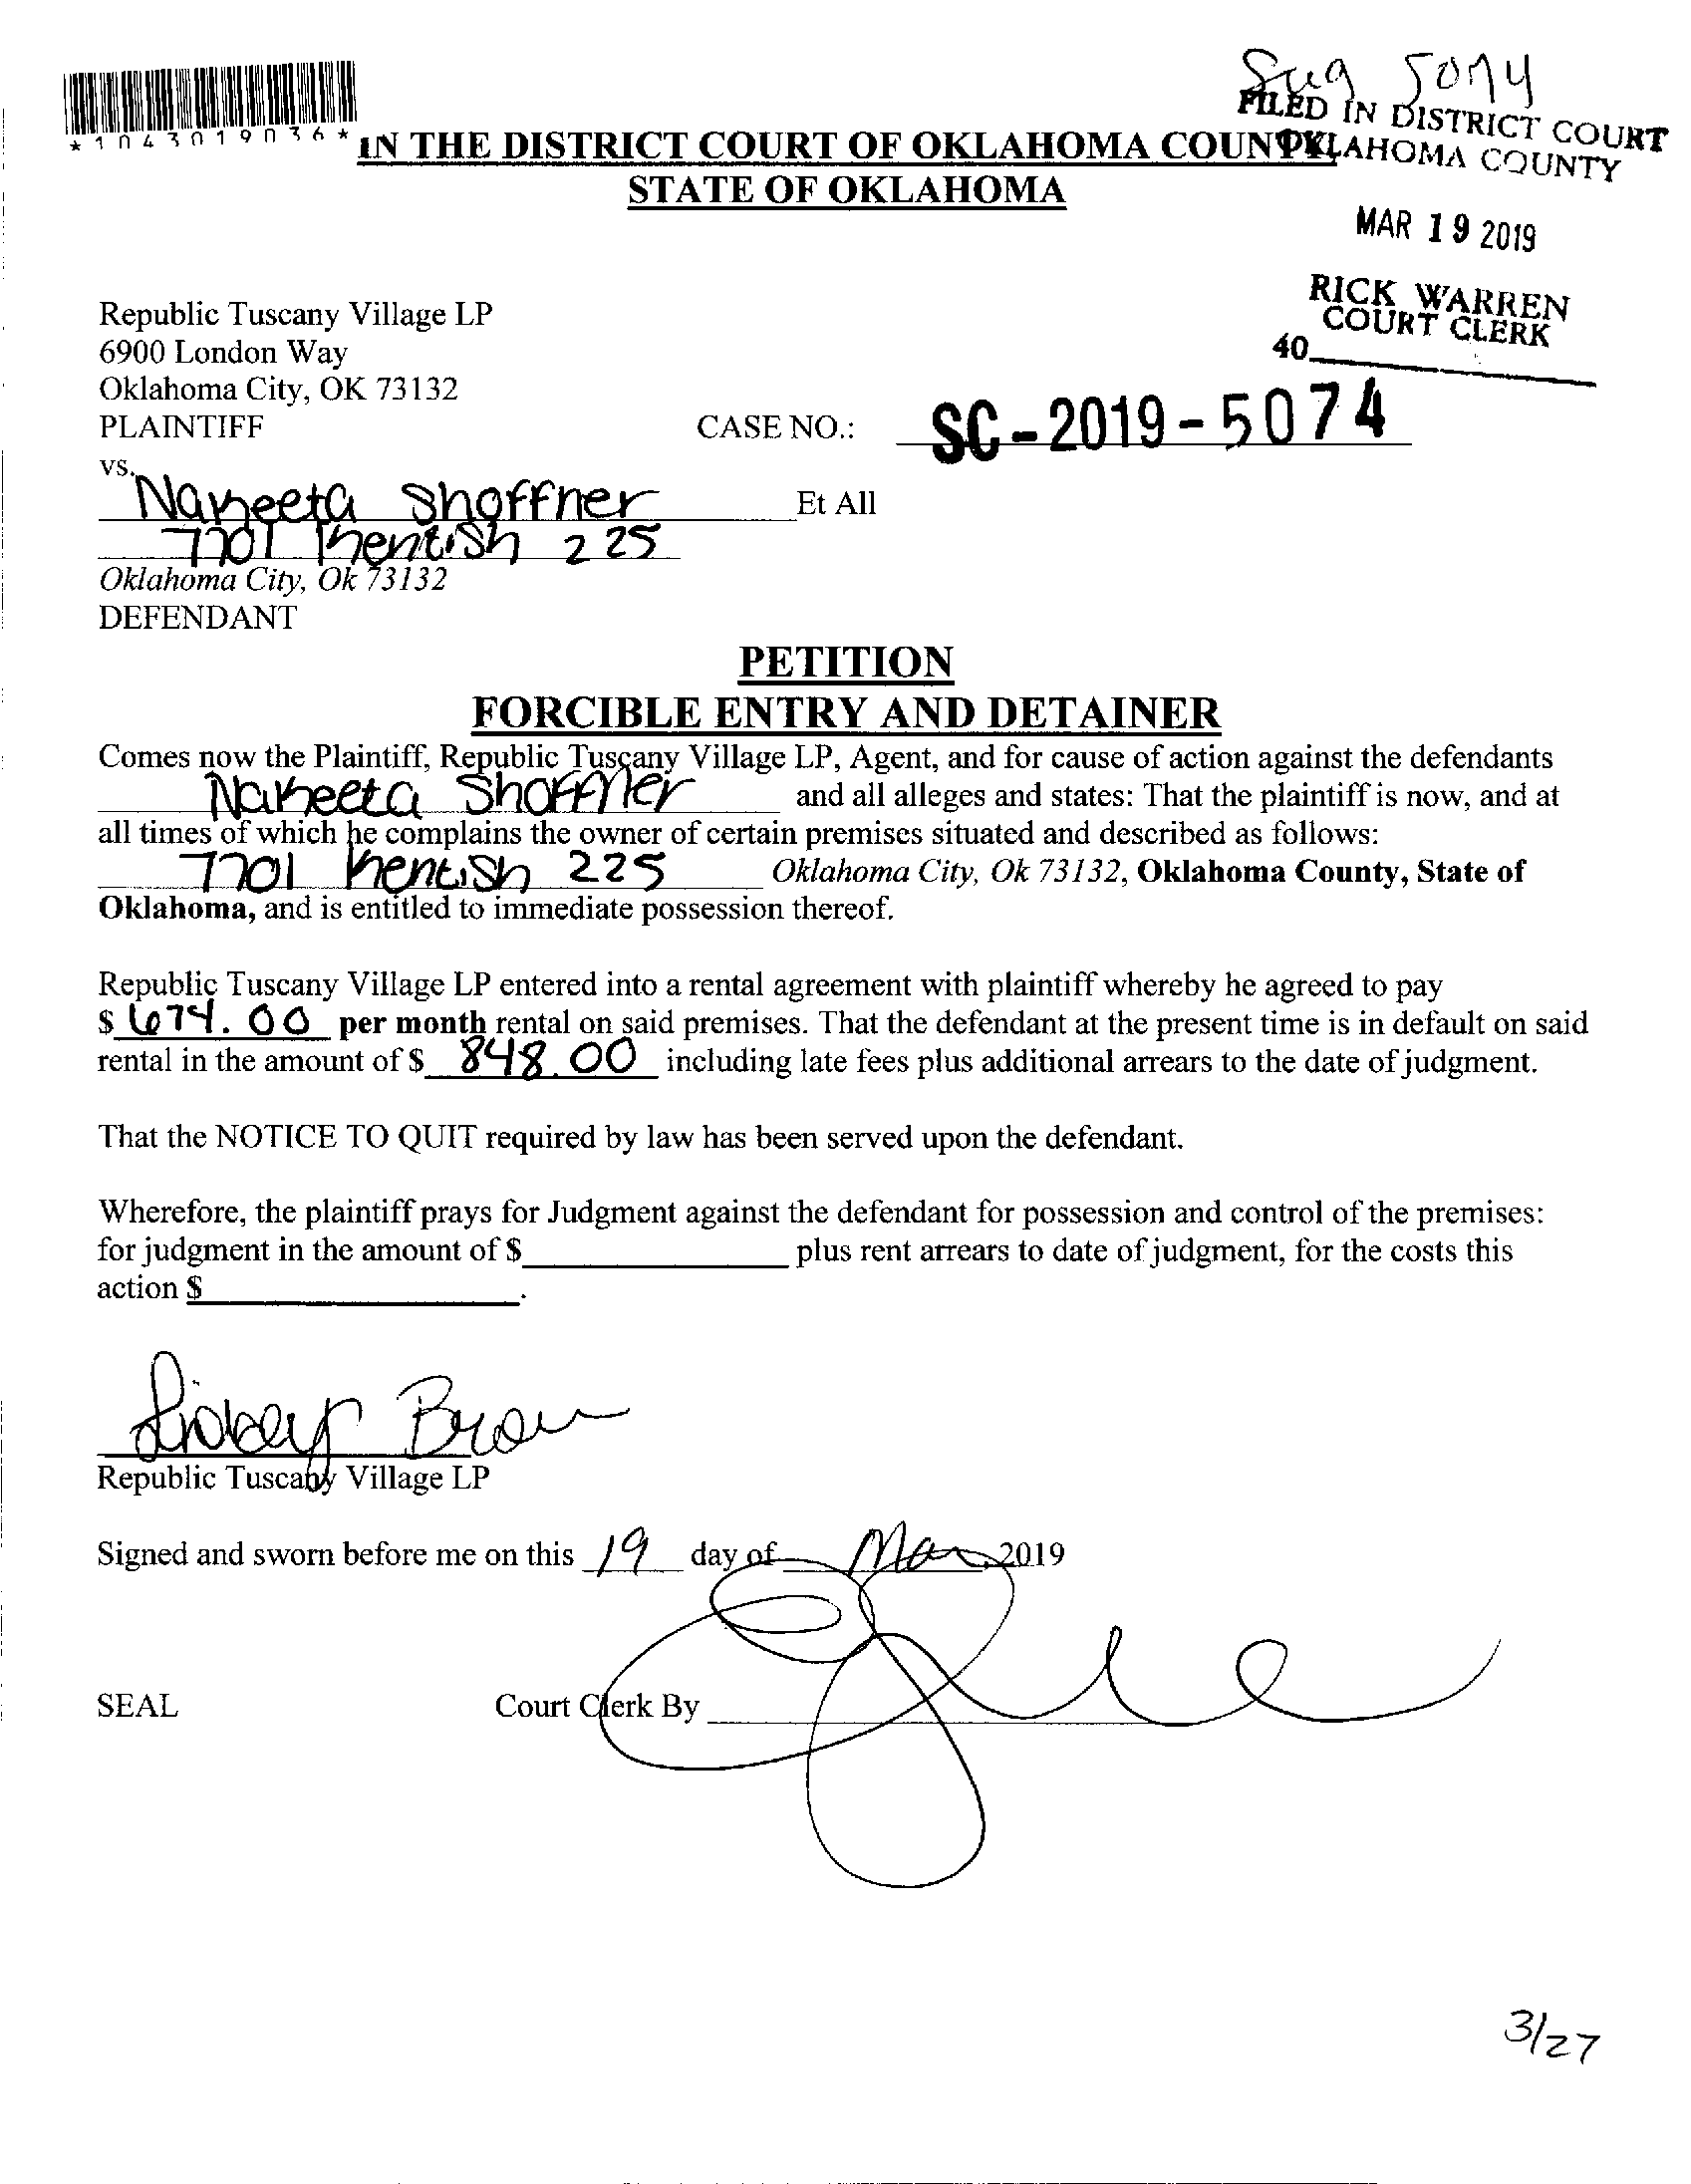 5074
FILED IN DISTRICT COURT
OKLAHOMA COUNTY
*1043019036*
IN THE DISTRICT COURT OF OKLAHOMA COUNTY
STATE OF OKLAHOMA
MAR 19 2019
RICK WARREN
COURT CLERK
40
Republic Tuscany Village LP
6900 London Way
Oklahoma City, OK 73132
PLAINTIFF
CASE NO.: SC-2019-5074
vs.
Nakeeta Shoffner Et All
7701 Kentish 225
Oklahoma City, Ok 73132
DEFENDANT
PETITION
FORCIBLE ENTRY AND DETAINER
Comes now the Plaintiff, Republic Tuscany Village LP, Agent, and for cause of action against the defendants
Nakeeta Shoffner and all alleges and states: That the plaintiff is now, and at
all times of which he complains the owner of certain premises situated and described as follows:
7701 Kentish 225 Oklahoma City, Ok 73132, Oklahoma County, State of
Oklahoma, and is entitled to immediate possession thereof.
Republic Tuscany Village LP entered into a rental agreement with plaintiff whereby he agreed to pay
$ 674.00 per month rental on said premises. That the defendant at the present time is in default on said
rental in the amount of $ 848.00 including late fees plus additional arrears to the date of judgment.
That the NOTICE TO QUIT required by law has been served upon the defendant.
Wherefore, the plaintiff prays for Judgment against the defendant for possession and control of the premises:
for judgment in the amount of $ plus rent arrears to date of judgment, for the costs this
action $ .
Republic Tuscany Village LP
Signed and sworn before me on this 19 day of Mar, 2019
SEAL
Court Clerk By
3/27